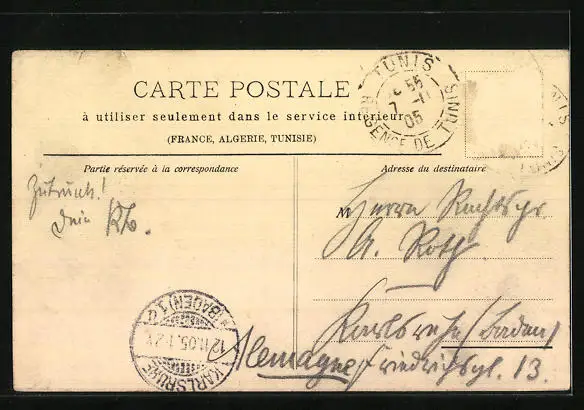 CARTE POSTALE
à utiliser seulement dans le service intérieur
(FRANCE, ALGERIE, TUNISIE)
TUNIS
7 -11
05
REGENCE DE TUNIS
Partie réservée à la correspondance
Adresse du destinataire
Dein
M Herrn
A. Roth
Karlsruhe (Baden)
Allemagne Friedrichspl. 13.
(BADEN)
12.11.05.
KARLSRUHE